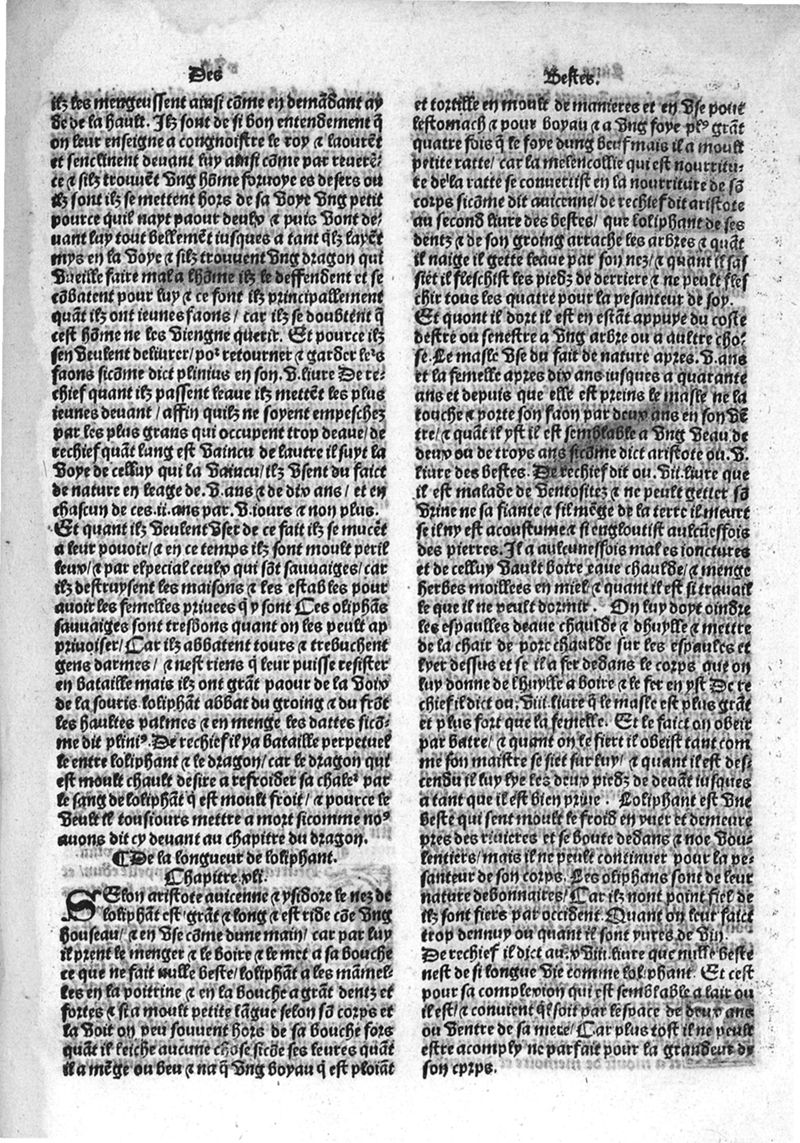 Des
ilz les mengeussent ainsi cõme en demãdant ay
de de la hault. Ilz sont de si bon entendement q̃
on leur enseigne a congnoistre le roy ⁊ laourẽt
et senclinent devant luy ainsi cõme par reverẽ-
ce ⁊ silz trouvẽt vng hõme forvoye es desers ou
ilz sont ilz se mettent hors de sa voye vng petit
pource quil nayt paour deulx ⁊ puis vont de-
uant luy tout bellemẽt iusques a tant q̃lz layẽt
mys en la voye ⁊ silz trouvent vng dragon qui
vueille faire mal a lhõme ilz le deffendent et se
cõbatent pour luy ⁊ ce font ilz principallement
quãt ilz ont ieunes faons / car ilz se doubtent q̃
cest hõme ne les viengne querir. Et pource ilz
sen veulent delivrer/ poʳ retourner ⁊ garder leʳs
faons sicõme dict plinius en son .v. livre De re-
chief quant ilz passent leaue ilz mettẽt les plus
ieunes devant / affin quilz ne soyent empeschez
par les plus grans qui occupent trop deaue/ de
rechief quãt lung est vaincu de lautre il fuyt la
voye de celluy qui la vaincu/ ilz vsent du faict
de nature en leage de .v. ans ⁊ de dix ans / et en
chascun de ces .ii. ans par .v. iours ⁊ non plus.
Et quant ilz veulent vser de ce fait ilz se mucẽt
a leur povoir/ ⁊ en ce temps ilz sont moult peril
leux/ ⁊ par especial ceulx qui sõt sauvaiges/ car
ilz destruysent les maisons ⁊ les estables pour
avoir les femelles privees q̃ y sont Ces oliphãs
sauvaiges sont tresbons quant on les peult ap
privoiser/ Car ilz abbatent tours ⁊ trebuchent
gens darmes / ⁊ nest riens q̃ leur puisse resister
en bataille mais ilz ont grãt paour de la voix
de la souris. loliphãt abbat du groing ⁊ du frõt
les haultes palmes ⁊ en menge les dattes sicõ-
me dit pliniꝰ. De rechief il ya bataille perpetuel
le entre loliphant ⁊ le dragon/ car le dragon qui
est moult chault desire a refroider sa chaleʳ par
le sang de loliphãt q̃ est moult froit/ ⁊ pource le
veult il tousiours mettre a mort sicomme noꝰ
avons dit cy devant au chapitre du dragon.
¶De la longueur de loliphant.
Chapitre .xli.
SElon aristote avicenne ⁊ ysidore le nez de
loliphãt est/ grãt ⁊ long ⁊ est ride cõe vng
houseau/ ⁊ en vse cõme dune main/ car par luy
il prent le menger ⁊ le boire ⁊ le met a sa bouche
ce que ne fait nulle beste/ loliphãt a les mãmel-
les en la poitrine ⁊ en la bouche a grãt dentz et
fortes ⁊ si a moult petite lãgue selon sõ corps et
la voit on peu souvent hors de sa bouche fors
quãt il leiche aucune chose sicõe ses leures quãt
il a mẽge ou beu ⁊ na q̃ vng boyau q̃ est ploiãt
Bestes.
et tortille en moult de manieres et en vse pour
lestomach ⁊ pour boyau ⁊ a vng foye plꝰ grãt
quatre fois q̃ le foye dung beuf mais il a moult
petite ratte/ car la melencollie qui est nourritu-
re de la ratte se convertist en la nourriture de sõ
corps sicõme dit avicenne/ de rechief dit aristote
au second livre des bestes/ que loliphant de ses
dentz ⁊ de son groing arrache les arbres ⁊ quãt
il naige il gette leaue par son nez/ ⁊ quant il sas
siet il fleschist les piedz de derriere ⁊ ne peult fles
chir tous les quatre pour la pesanteur de soy.
Et quont il dort il est en estãt appuye du coste
destre ou senestre a vng arbre ou a aultre cho-
se. Le masle vse du fait de nature apres .v. ans
et la femelle apres dix ans iusques a quarante
ans et depuis que elle est preins le masle ne la
touche ⁊ porte son faon par deux ans en son vẽ
tre/ ⁊ quãt il yst il est semblable a vng veau de
deux ou de troys ans sicõme dict aristote ou .v.
livre des bestes. De rechief dit ou .vii. livre que
il est malade de ventositez ⁊ ne peult getter sõ
vrine ne sa fiante ⁊ sil mẽge de la terre il meurt
se il ny est acoustume ⁊ si engloutist aulcũeffois
des pierres. Il a aulcunessois mal es ioinctures
et de celluy vault boire eaue chaulde/ ⁊ menge
herbes moillees en miel ⁊ quant il est si travail
le que il ne peult dormir. On luy doyt oindre
les espaulles deaue chaulde ⁊ dhuylle ⁊ mettre
de la chair de porc chaulde sur les espaules et
lyer dessus et se il a fer dedans le corps que on
luy donne de lhuylle a boire ⁊ le fer en yst De re
chief il dict ou .viii. livre q̃ le masle est plus grãt
et plus fort que la femelle. Et le faict on obeir
par batre/ ⁊ quant on le fiert il obeist tant com
me son maistre se siet sur luy/ ⁊ quant il est des-
cendu il luy lye les deux piedz de devãt iusques
a tant que il est bien prive. Loliphant est vne
beste qui sent moult le froid en yver et demeure
pres des rivieres et se boute dedans ⁊ noe vou-
lentiers/ mais il ne peult continuer pour la pe-
santeur de son corps. Les oliphans sont de leur
nature debonnaires/ Car ilz nont point fiel de
ilz sont fiers par occident. Quant on leur faict
trop dennuy ou quant il sont yures de vin.
De rechief il dict au .xviii. livre que nulle beste
nest de si longue vie comme loliphant. Et cest
pour sa complexion qui est semblable a lair ou
il est/ ⁊ convient q̃l soit par lespace de deux ans
ou ventre de sa mere/ Car plus tost il ne peult
estre acomply ne parfait pour la grandeur de
son cprps.